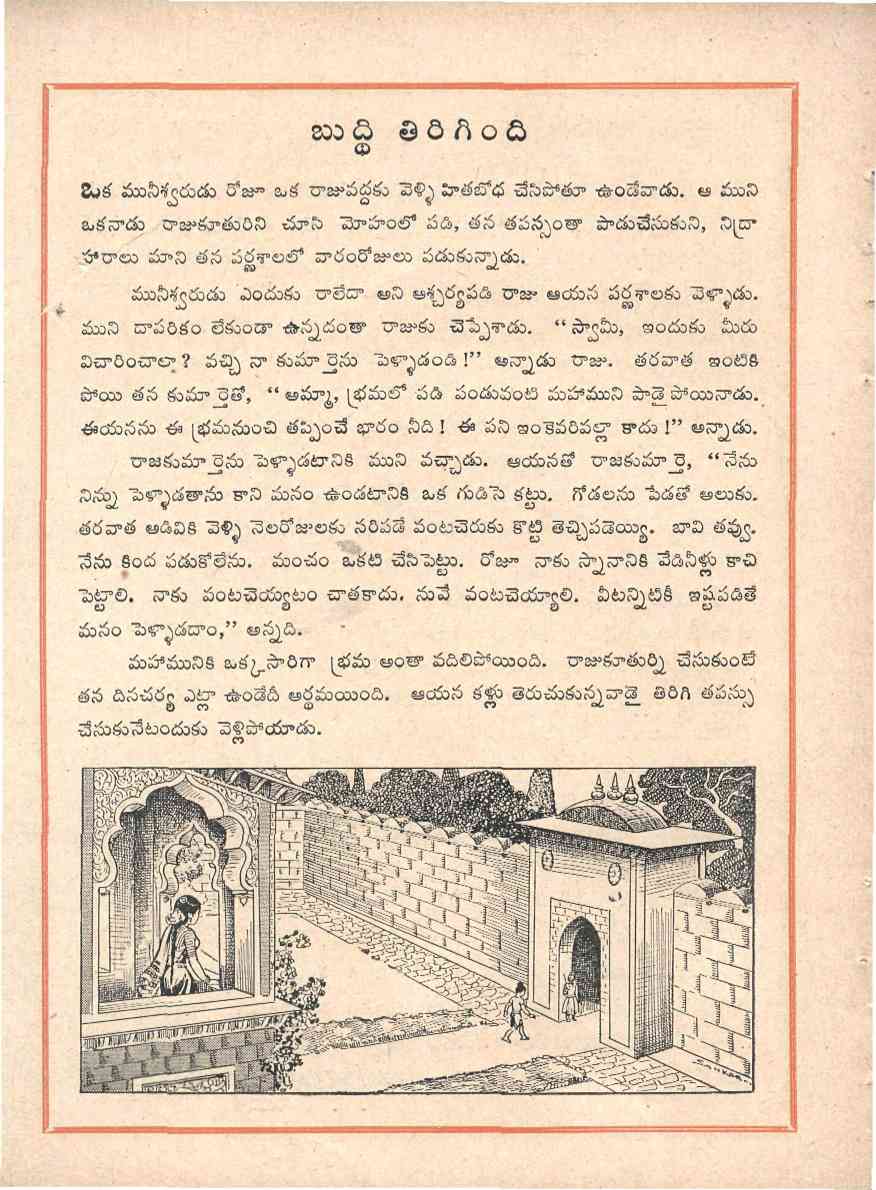 బుద్ధి తిరిగింది
ఒక మునీశ్వరుడు రోజూ ఒక రాజువద్దకు వెళ్ళి హితబోధ చేసిపోతూ ఉండేవాడు. ఆ ముని
ఒకనాడు రాజుకూతురిని చూసి మోహంలో పడి, తన తపస్సంతా పాడుచేసుకుని, నిద్రా
హారాలు మాని తన పర్ణశాలలో వారంరోజులు పడుకున్నాడు.
మునీశ్వరుడు ఎందుకు రాలేదా అని ఆశ్చర్యపడి రాజు ఆయన పర్ణశాలకు వెళ్ళాడు.
ముని దాపరికం లేకుండా ఉన్నదంతా రాజుకు చెప్పేశాడు. “స్వామీ, ఇందుకు మీరు
విచారించాలా? వచ్చి నా కుమార్తెను పెళ్ళాడండి!” అన్నాడు రాజు. తరవాత ఇంటికి
పోయి తన కుమార్తెతో, “అమ్మా, భ్రమలో పడి పండువంటి మహాముని పాడైపోయినాడు.
ఈయనను ఈ భ్రమనుంచి తప్పించే భారం నీది! ఈ పని ఇంకెవరివల్లా కాదు!” అన్నాడు.
రాజకుమార్తెను పెళ్ళాడటానికి ముని వచ్చాడు. ఆయనతో రాజకుమార్తె, “నేను
నిన్ను పెళ్ళాడతాను కాని మనం ఉండటానికి ఒక గుడిసె కట్టు. గోడలను పేడతో అలుకు.
తరవాత అడివికి వెళ్ళి నెలరోజులకు సరిపడే వంటచెరుకు కొట్టి తెచ్చిపడెయ్యి. బావి తవ్వు.
నేను కింద పడుకోలేను. మంచం ఒకటి చేసిపెట్టు. రోజూ నాకు స్నానానికి వేడినీళ్లు కాచి
పెట్టాలి. నాకు వంటచెయ్యటం చాతకాదు. నువే వంటచెయ్యాలి. వీటన్నిటికీ ఇష్టపడితే
మనం పెళ్ళాడదాం,” అన్నది.
మహామునికి ఒక్కసారిగా భ్రమ అంతా వదిలిపోయింది. రాజుకూతుర్ని చేసుకుంటే
తన దినచర్య ఎట్లా ఉండేదీ అర్థమయింది. ఆయన కళ్లు తెరుచుకున్నవాడై తిరిగి తపస్సు
చేసుకునేటందుకు వెళ్లిపోయాడు.
SANKAR